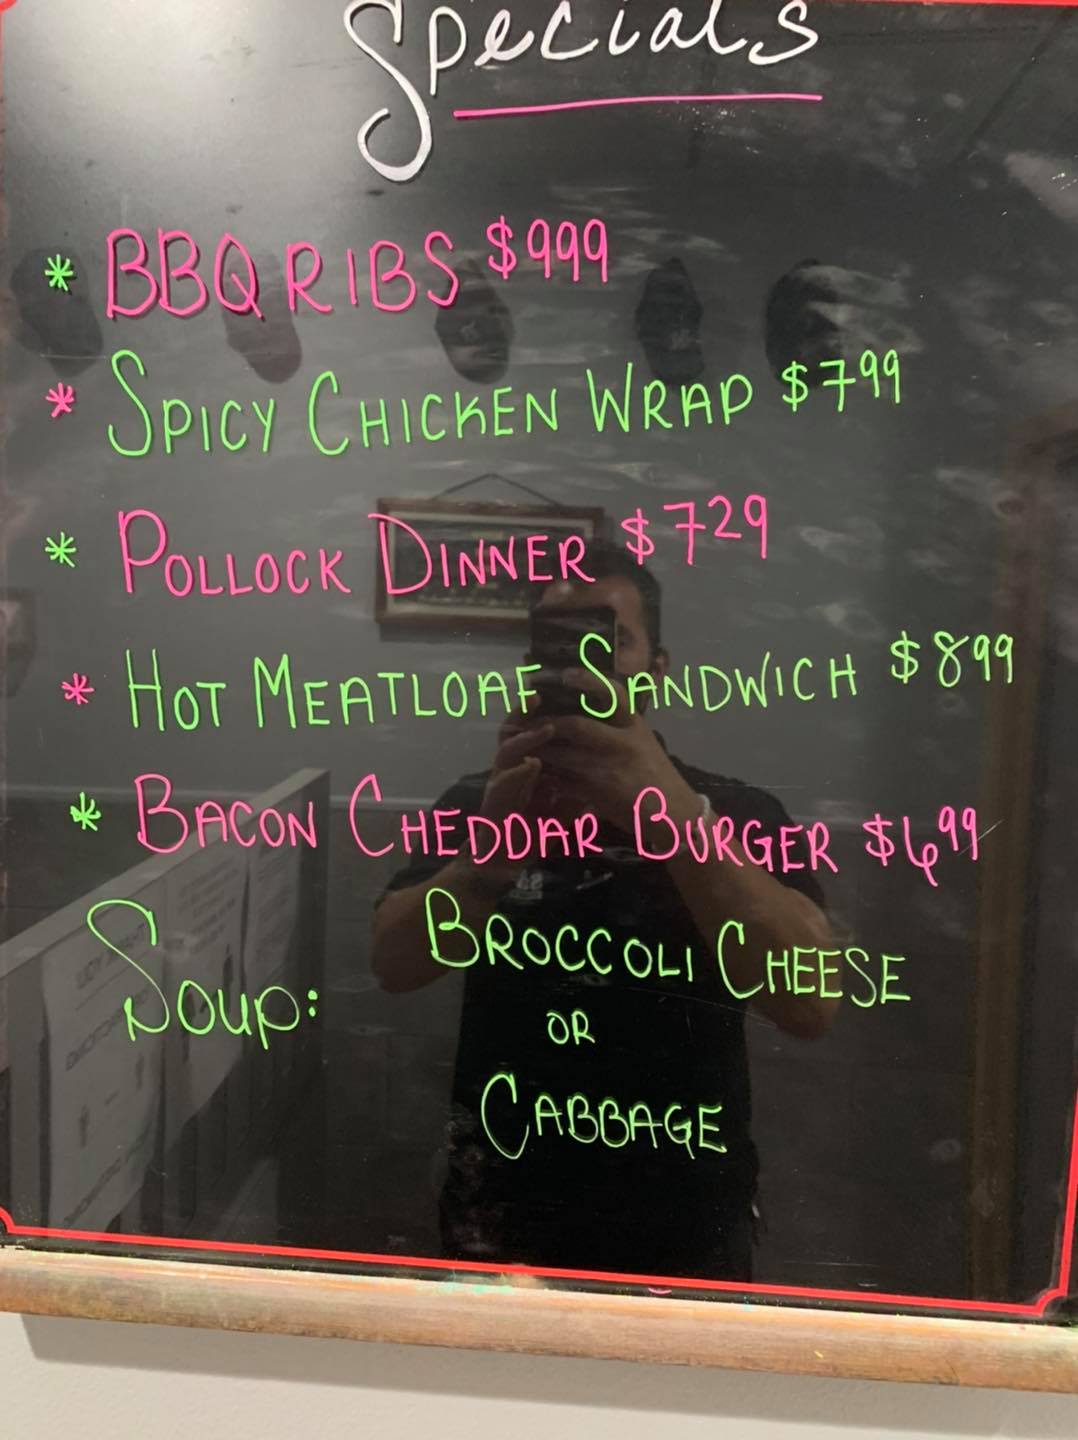 Specials
* BBQ RIBS $999
* SPICY CHICKEN WRAP $799
* POLLOCK DINNER $729
* HOT MEATLOAF SANDWICH $899
* BACON CHEDDAR BURGER $699
SOUP: BROCCOLI CHEESE
OR
CABBAGE